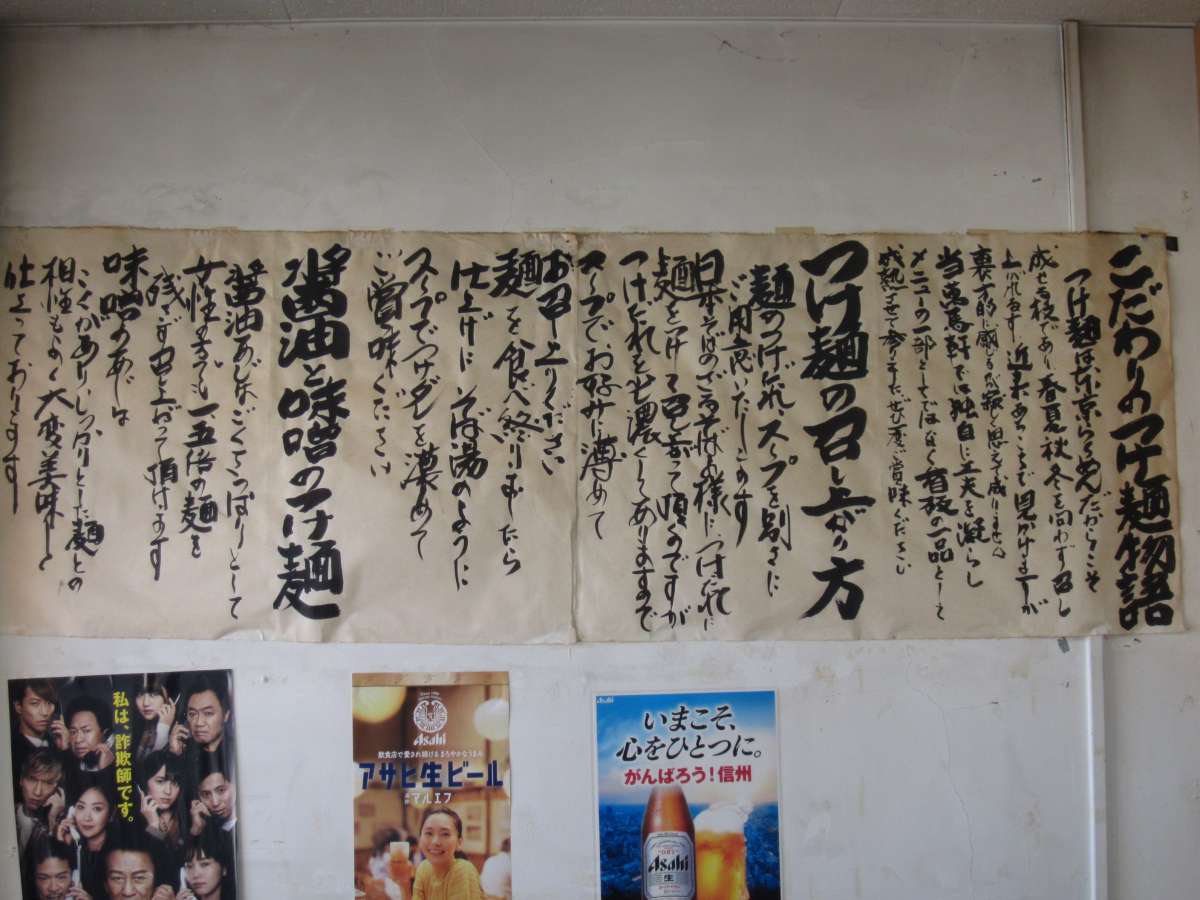 こだわりのつけ麺物語
つけ麺は東京らーめんだからこそ
成せる技であり春夏秋冬を問わず召し
上がれます 近来あちこちで見かけますが
裏丁的に感じるのが寂しく思えて成りません
当萬馬軒では独自に工夫を凝らし
メニューの一部としてではなく看板の一品として
成熟させて参りましたぜひ一度ご賞味ください
つけ麺の召し上がり方
麺のつけだれ、スープを別々に
ご用意いたしこます
日本そばのざるそば同様に、つけだれに
麺をつけて召し上がって頂くのですが
つけだれを濃くしてありますので
スープで、お好みに薄めて
お召し上りください
麺を食べ終りましたら
仕上げに、そば湯のように
スープでつけダレを薄めて
ご賞味ください
醤油と味噌のつけ麺
醤油あじはごくさっぱりとして
女性の方でも一、五倍の麺を
残さず召し上がって頂けます
味噌のあじは
こくがありしっかりとした麺との
相性もよく大変美味しく
仕上っております
私は、詐欺師です。
Asahi
飲食店で愛され続けるまろやかなうまみ
アサヒ生ビール
通称マルエフ
Asahi
いまこそ、
心をひとつに。
がんばろう!信州
Asahi
生